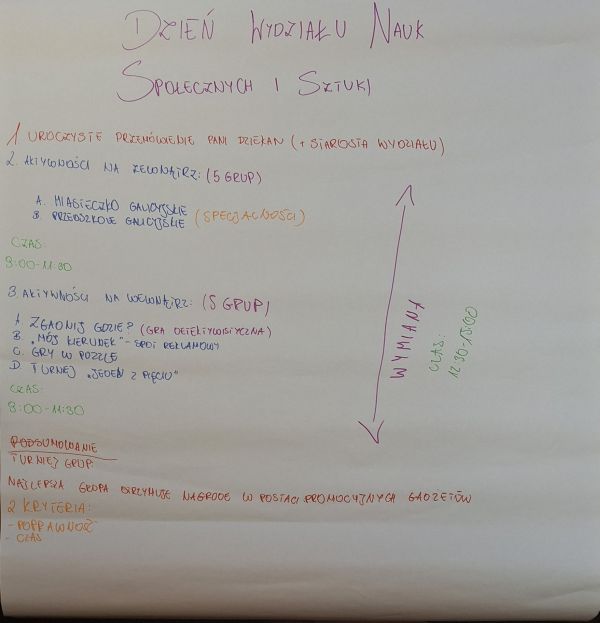 DZIEŃ WYDZIAŁU NAUK
SPOŁECZNYCH I SZTUKI
1 UROCZYSTE PRZEMÓWIENIE PANI DZIEKAN (+ STAROSTA WYDZIAŁU)
2. AKTYWNOŚCI NA ZEWNĄTRZ: (5 GRUP)
A. MIASTECZKO GALICYJSKIE
B. PRZEDSZKOLE GALICYJSKIE (SPECJALNOŚCI)
CZAS:
9:00-11:30
3. AKTYWNOŚCI NA WEWNĄTRZ: (5 GRUP)
A. ZGADNIJ GDZIE? (GRA DETEKTYWISTYCZNA)
B. „MÓJ KIERUNEK" - SPOT REKLAMOWY
C. GRY W PUZZLE
D. TURNIEJ „JEDEN Z PIĘCIU"
CZAS:
9:00-11:30
WYMIANA
CZAS:
12:30-15:00
PODSUMOWANIE
TURNIEJ GRUP:
NAJLEPSZA GRUPA OTRZYMUJE NAGRODĘ W POSTACI PROMOCYJNYCH GADŻETÓW
2 KRYTERIA:
- POPRAWNOŚĆ
- CZAS